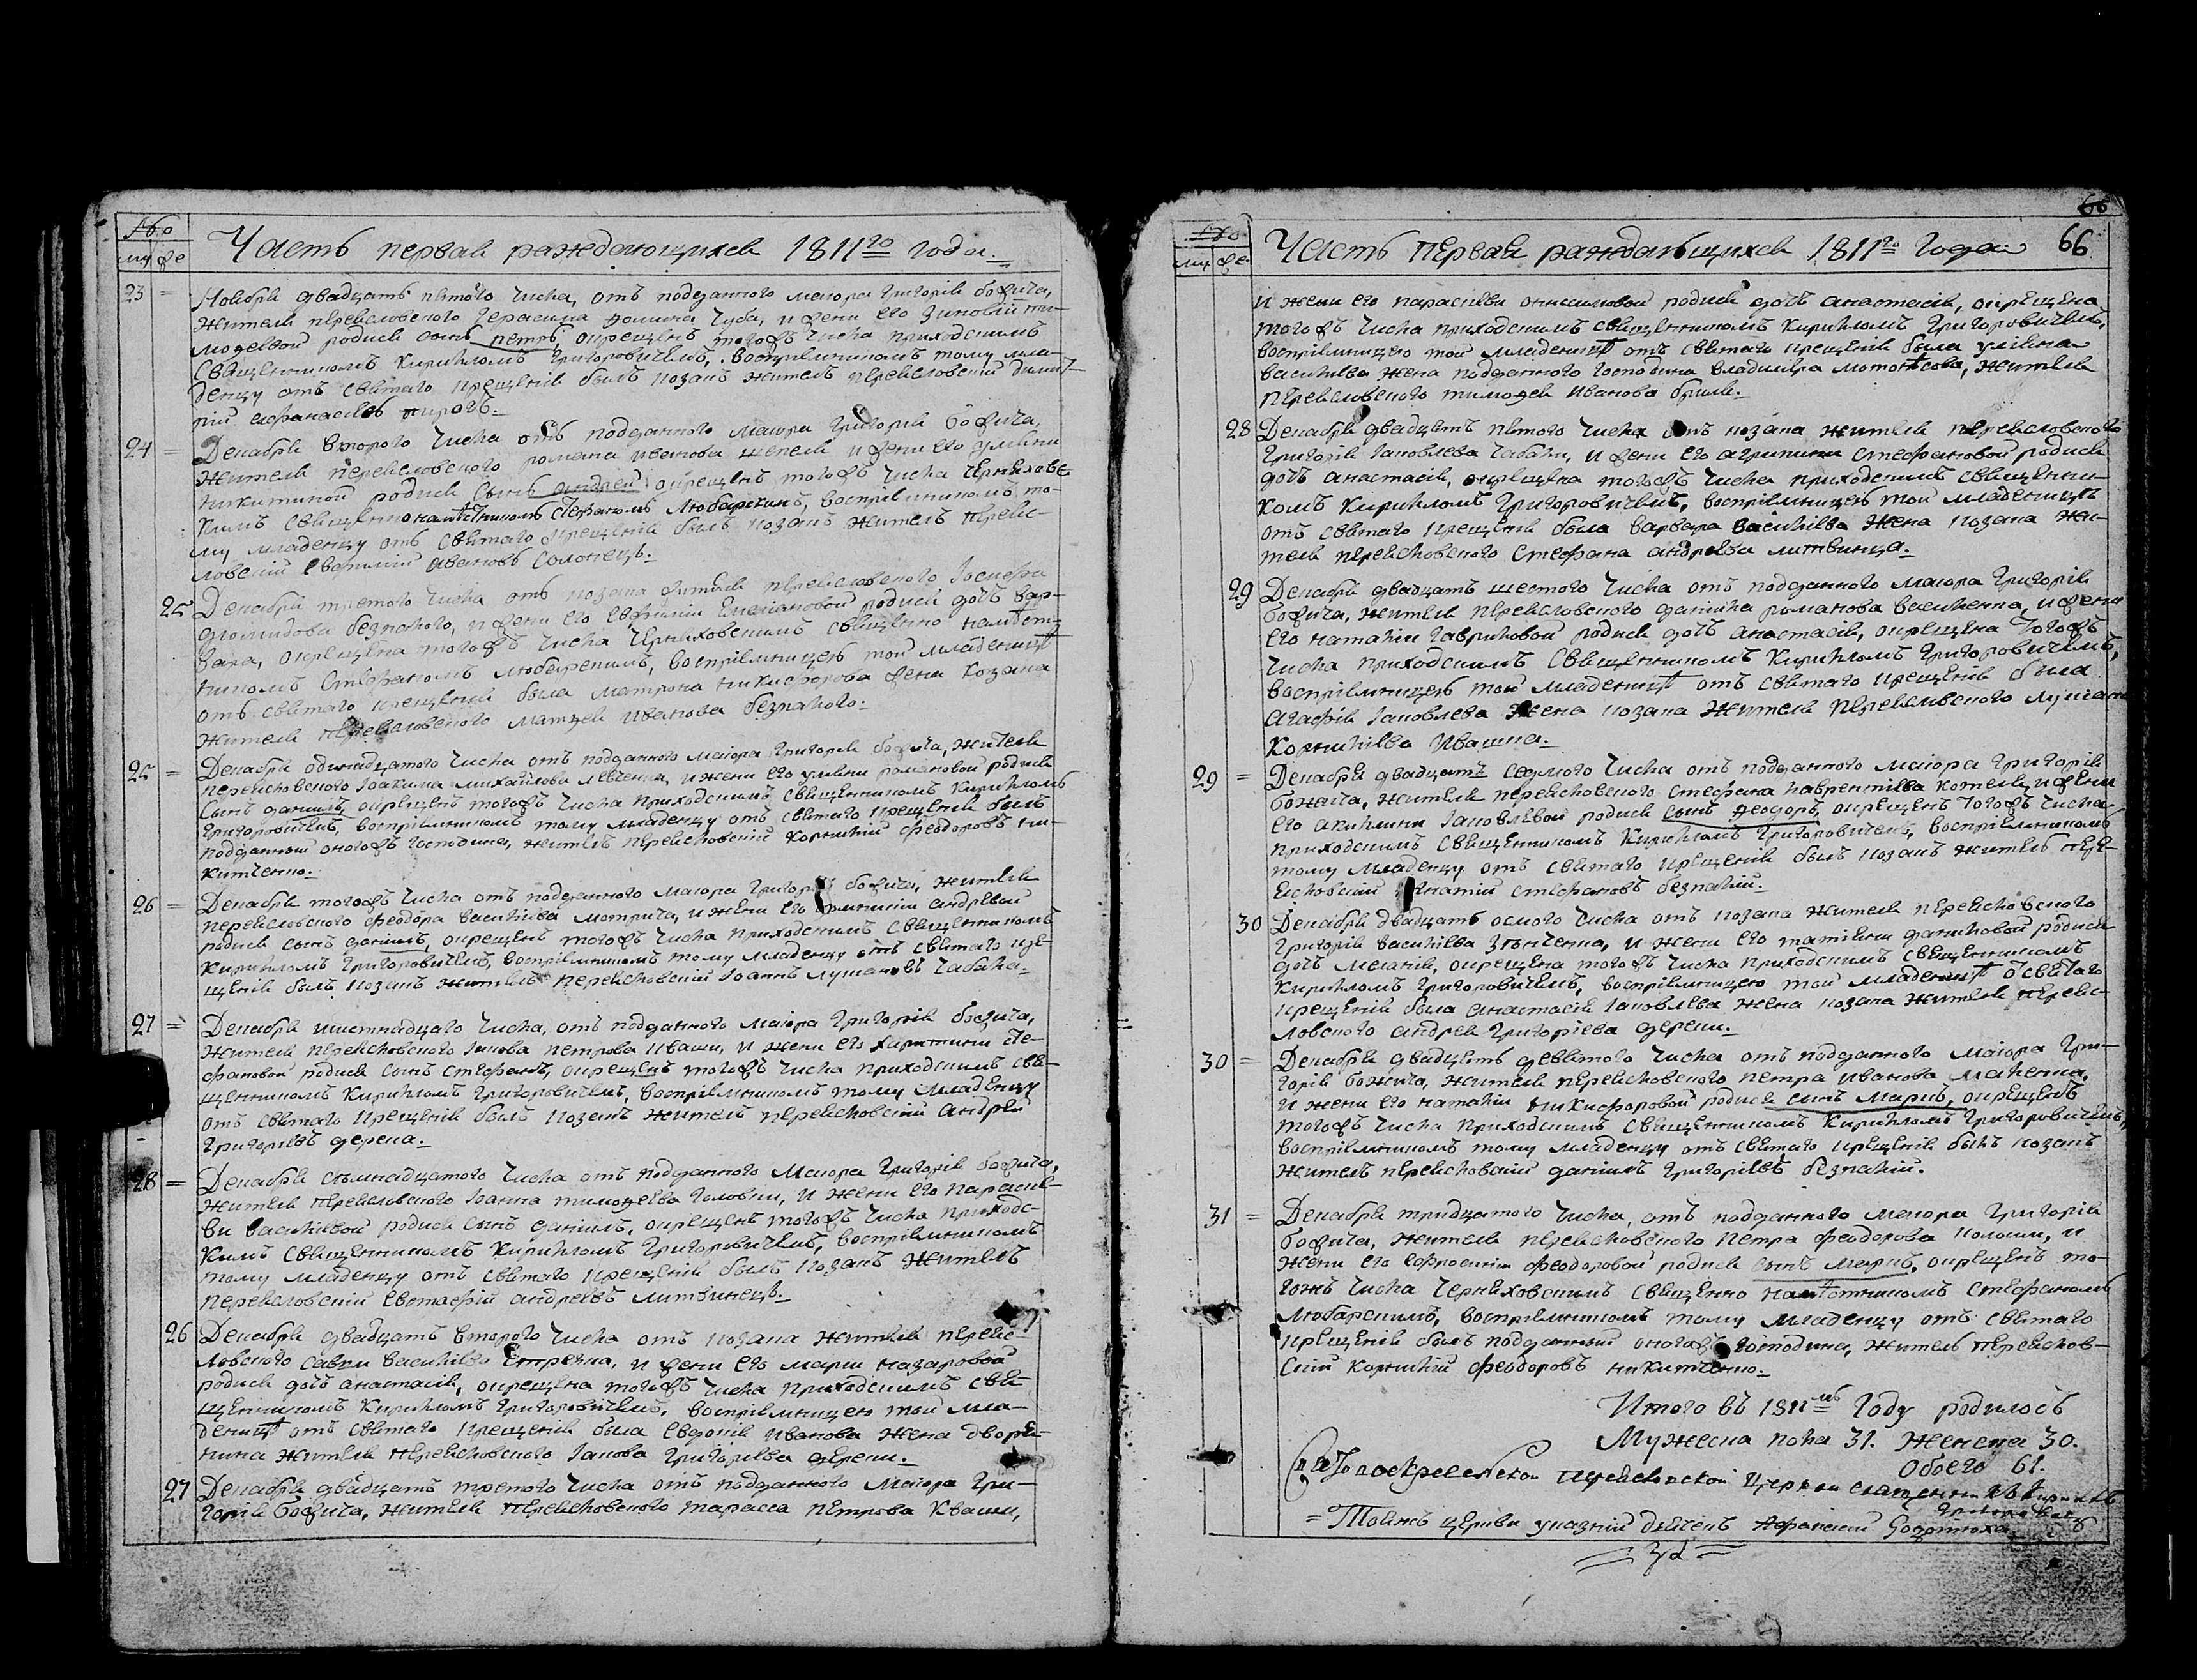 №
му же
Часть первая раждающихся 1811го года.
23 = Ноября двадцать пятого числа, отъ подданного маіора Григорія божича,
жителя переясловского Герасима Фомина чуба, и жени его Зиновіи ти-
мофеевой родися сынъ петръ, окрещенъ тогожъ числа приходскимъ
Священникомъ Кирилломъ Григоровичемъ, воспріемникомъ тому мла-
денцу отъ святаго крещенія былъ козакъ житель переясловский димит-
рій афанасіевъ пирогъ.
24 = Декабря второго числа отъ подданного маіора Григорія Божича,
жителя переясловского романа иванова и жени его уліяни
никитиной родися Сынъ андрей окрещенъ тогожъ числа Черняховс-
кимъ священнонамѣстникомъ Стефаномъ Любарскимъ, воспріемникомъ то-
му младенцу отъ святаго крещенія былъ козакъ житель переяс-
ловскій Евфимій ивановъ Солонецъ.
25 Декабря третого числа отъ козака жителя переясловского Іосифа
діомидова безпалого, и жени его Евфиміи Емеліановой родися дочь вар-
вара, окрещена тогожъ числа Черняховскимъ священно намѣст-
никомъ Стефаномъ любарскимъ, воспріемницею той младеницѣ
отъ святаго крещенія была матрона никифорова жена козака
жителя переясловского матвея иванова безпалого.
25 = Декабря одинадцатого числа отъ подданного маіора Григорія божича, жителя
переясловского Іоакима михайлова левченка, и жени его уліяни романовой родися
Сынъ даніилъ, окрещенъ тогожъ числа приходскимъ священникомъ Кирилломъ
Григоровичемъ, воспріемникомъ тому младенцу отъ святаго крещенія былъ
подданный оногожъ господина, житель переясловскій корнилій феодоровъ ни-
китченко.
26 = Декабря тогожъ числа отъ подданного маіора Григорія божича, жителя
переясловского феодора василіева мотрича, и жени его андреевой
родися сынъ даніилъ, окрещенъ тогожъ числа приходскимъ священникомъ
Кирилломъ Григоровичемъ, воспріемникомъ тому младенцу отъ святаго кре-
щенія былъ козакъ житель переясловскій Іоаннъ лукіановъ чабака.
27 = Декабря шистнадцаго числа, отъ подданного маіора Григорія божича,
жителя переясловского Іакова петрова кваши, и жени его христини сте-
фановой родися сынъ стефанъ, окрещенъ тогожъ числа приходскимъ свя-
щенникомъ Кирилломъ Григоровичемъ, воспріемникомъ тому младенцу
отъ святаго крещенія былъ козакъ житель переясловскій андрей
Григоріевъ дерека.
28 = Декабря сѣмнадцатого числа отъ подданного маіора Григорія божича,
жителя переясловского Іоанна тимофеева Головки, и жени его параске-
ви василіевой родися сынъ даніилъ, окрещенъ тогожъ числа приходс-
кимъ священникомъ Кирилломъ Григоровичемъ, воспріемникомъ
тому младенцу отъ святаго крещенія былъ козакъ житель
переясловскій Евстафій андреевъ литвинецъ.
26 Декабря двадцать второго числа отъ козака жителя переяс-
ловского савви василіева и жени его маріи назаровой
родися дочь анастасія, окрещена тогожъ числа приходскимъ свя-
щенникомъ Кирилломъ Григоровичемъ, воспріемницею той мла-
деницѣ отъ святаго крещенія была евдокія иванова жена дворя-
нина жителя переясловского Іакова Григоріева дереки.
27 Декабря двадцать третого числа отъ подданного маіора Гри-
горія божича, жителя переясловского тарасса петрова Кваши,
66
№
му же
Часть первая раждающихся 1811го года 66
и жени его параскеви онисимовой родися дочь анастасія, окрещена
тогожъ числа приходскимъ священникомъ Кирилломъ Григоровичемъ,
воспріемницею той младеницѣ отъ святаго крещенія была уліяна
василіева жена подданного господина владимира жителя
переясловского тимофея иванова бриля.
28 Декабря двадцять пятого числа отъ козака жителя переясловского
Григорія Іаковлева чабаки, и жени его агрипини стефановой родися
дочь анастасія, окрещена тогожъ числа приходскимъ священни-
комъ Кирилломъ Григоровичемъ, воспріемницею той младеницѣ
отъ святаго крещенія была варвара василіева жена козака жи-
теля переясловского Стефана андреева литвинца.
29 Декабря двадцать шестого числа отъ подданного маіора Григорія
божича, жителя переясловского даніила романова василенка, и жени
его наталіи гавриловой родися дочь анастасія, окрещена тогожъ
числа приходскимъ священникомъ Кирилломъ Григоровичемъ,
воспріемницею той младеницѣ отъ святаго крещенія была
агафія Іаковлева жена козака жителя переясловского лукіана
Корниліева Ивашка.
29 = Декабря двадцать седмого числа отъ подданного маіора Григорія
божича, жителя переясловского стефана лаврентіева и жени
его акилини Іаковлевой родися сынъ феодоръ, окрещенъ тогожъ числа
приходскимъ священникомъ Кирилломъ Григоровичемъ, воспріемникомъ
тому младенцу отъ святаго крещенія былъ козакъ житель пере-
ясловскій Игнатій стефановъ безпалій.
30 Декабря двадцать осмого числа отъ козака жителя переясловского
Григорія василіева зѣнченка, и жени его татіяни даниловой родися
дочь меланія, окрещена тогожъ числа приходскимъ священникомъ
Кирилломъ Григоровичемъ, воспріемницею той младеницѣ о святаго
крещенія была анастасія Іаковлева жена козака жителя переяс-
ловского андрея Григоріева дереки.
30 = Декабря двадцять девятого числа отъ подданного маіора Гри-
горія божича, жителя переясловского петра иванова
и жени его наталіи никифоровой родися синъ маркъ, окрещенъ
тогожъ числа приходскимъ священникомъ Кирилломъ Григоровичемъ,
воспріемникомъ тому младенцу отъ святаго крещенія былъ козакъ
житель переясловскій даніилъ Григоріевъ безпалій.
31 = Декабря тридцатого числа, отъ подданного маіора Григорія
божича, жителя переясловского Петра феодорова и
жени его ефросиніи феодоровой родися сынъ маркъ, окрещенъ то-
гожъ числа Черняховскимъ священно намѣстникомъ стефаномъ
любарскимъ, воспріемникомъ тому младенцу отъ святаго
крещенія былъ подданный оногожъ господина, житель переяслов-
скій корнилій феодоровъ никитченко.
Итого въ 1811мъ году родилось
Мужеска пола 31. Женска 30.
Обоего 61.
Воскресенской переясловской церкви священникъ Кириллъ
Григоровичъ
= Тояжъ церкви указній дячекъ Афанасий